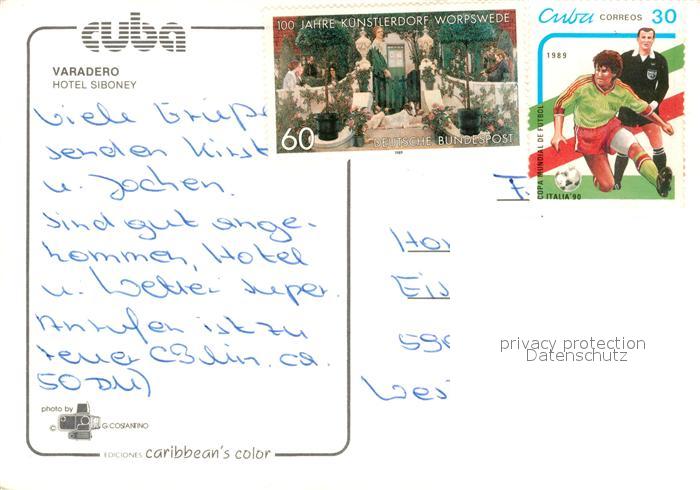 cuba
VARADERO
HOTEL SIBONEY
Viele Grüße
senden Kirst
u. Jochen.
Sind gut ange-
kommen, Hotel
u. Wetter super.
Anrufen ist zu
teuer (3 Min. ca.
50 DM)
photo by
© G. COSTANTINO
EDICIONES caribbean's color
100 JAHRE KÜNSTLERDORF WORPSWEDE
60 DEUTSCHE BUNDESPOST
1989
Cuba CORREOS 30
1989
COPA MUNDIAL DE FUTBOL
ITALIA '90
F.
Ho
Eis
590
Wes
privacy protection
Datenschutz